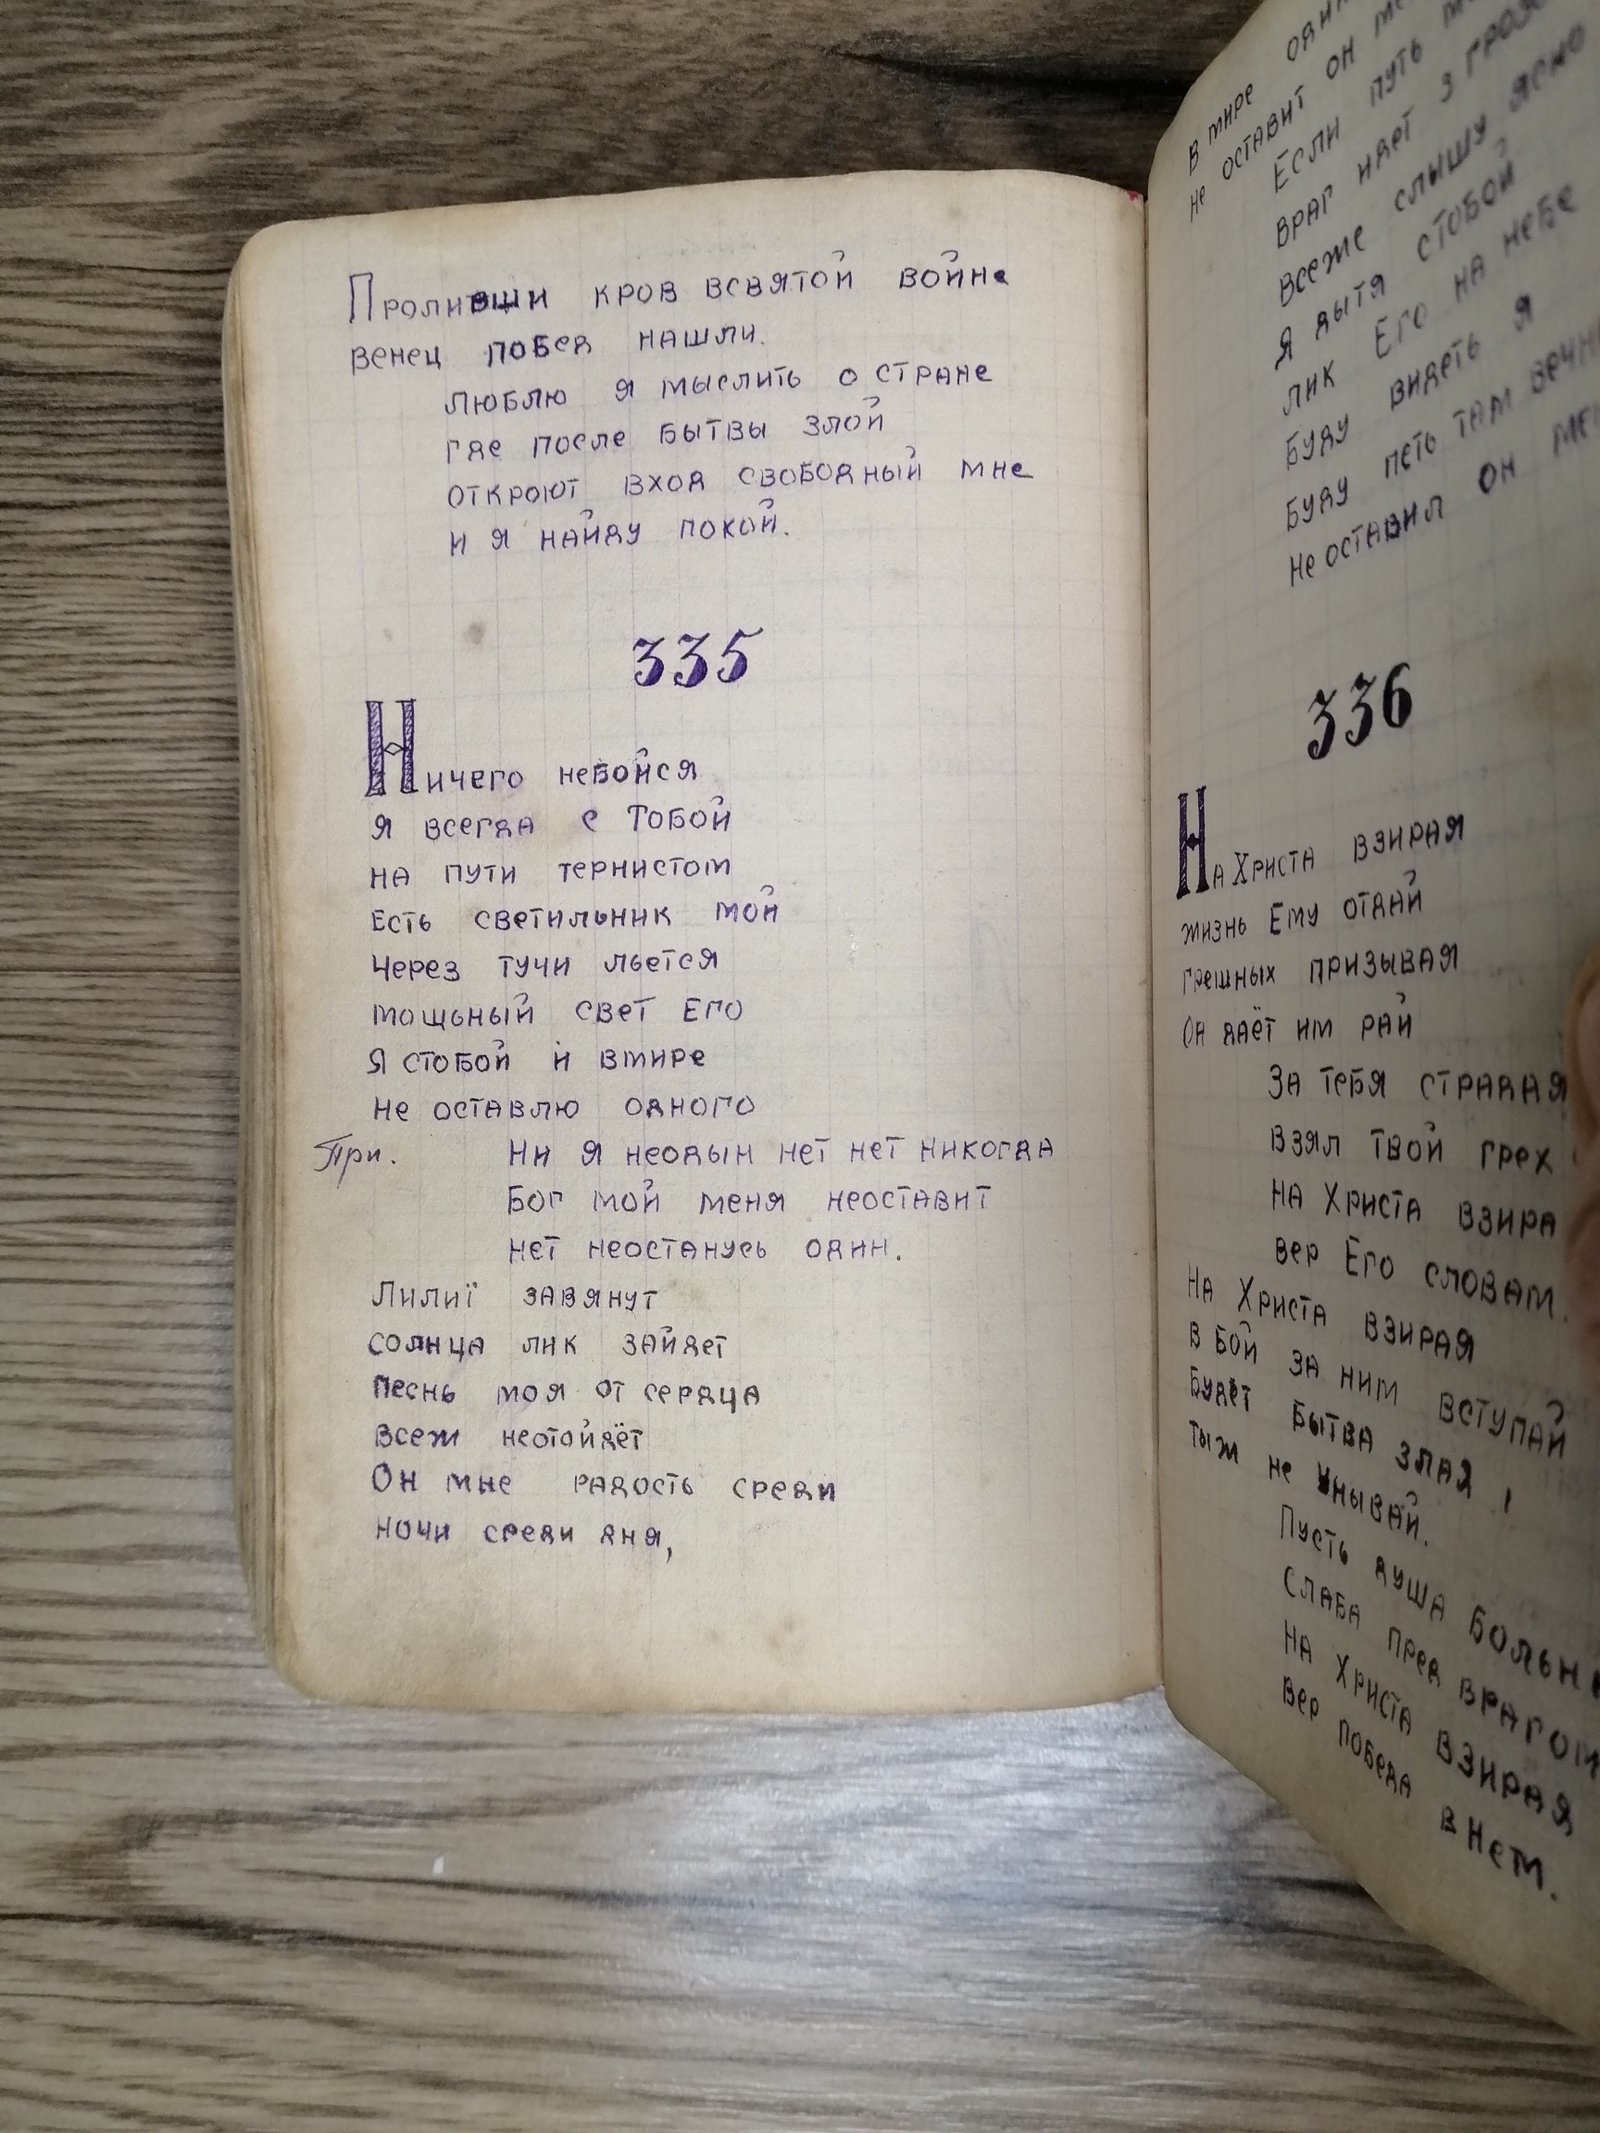 Проливши кров всвятой войне
венец побед нашли.
люблю я мыслить о стране
где после бытвы злой
откроют вход свободный мне
и я найду покой.
335
Ничего небойся
я всегда с Тобой
на пути тернистом
Есть светильник мой
через тучи льется
мощьный свет Его
Я стобой и вмире
не оставлю одного
При. Ни я неодын нет нет никогда
Бог мой меня неоставит
нет неостанусь один.
Лилиї завянут
солнца лик зайдет
песнь моя от сердца
всеж неотойдёт
Он мне радость среди
ночи среди дня,
В мире
не оставит он
Если путь
враг идет з
всеже слышу ясно
Я дытя стобой
лик Его на небе
буду видеть я
буду петь там
не оставил он
336
На Христа взирая
жизнь Ему отдай
грешных призывая
Он даёт им рай
За тебя страдая
взял твой грех
на Христа взира
вер Его словам.
На Христа взирая
в бой за ним вступай
будет бытва злая,
тыж не унывай.
Пусть душа
Слаба пред врагом
На Христа взирая
вер победа внем.